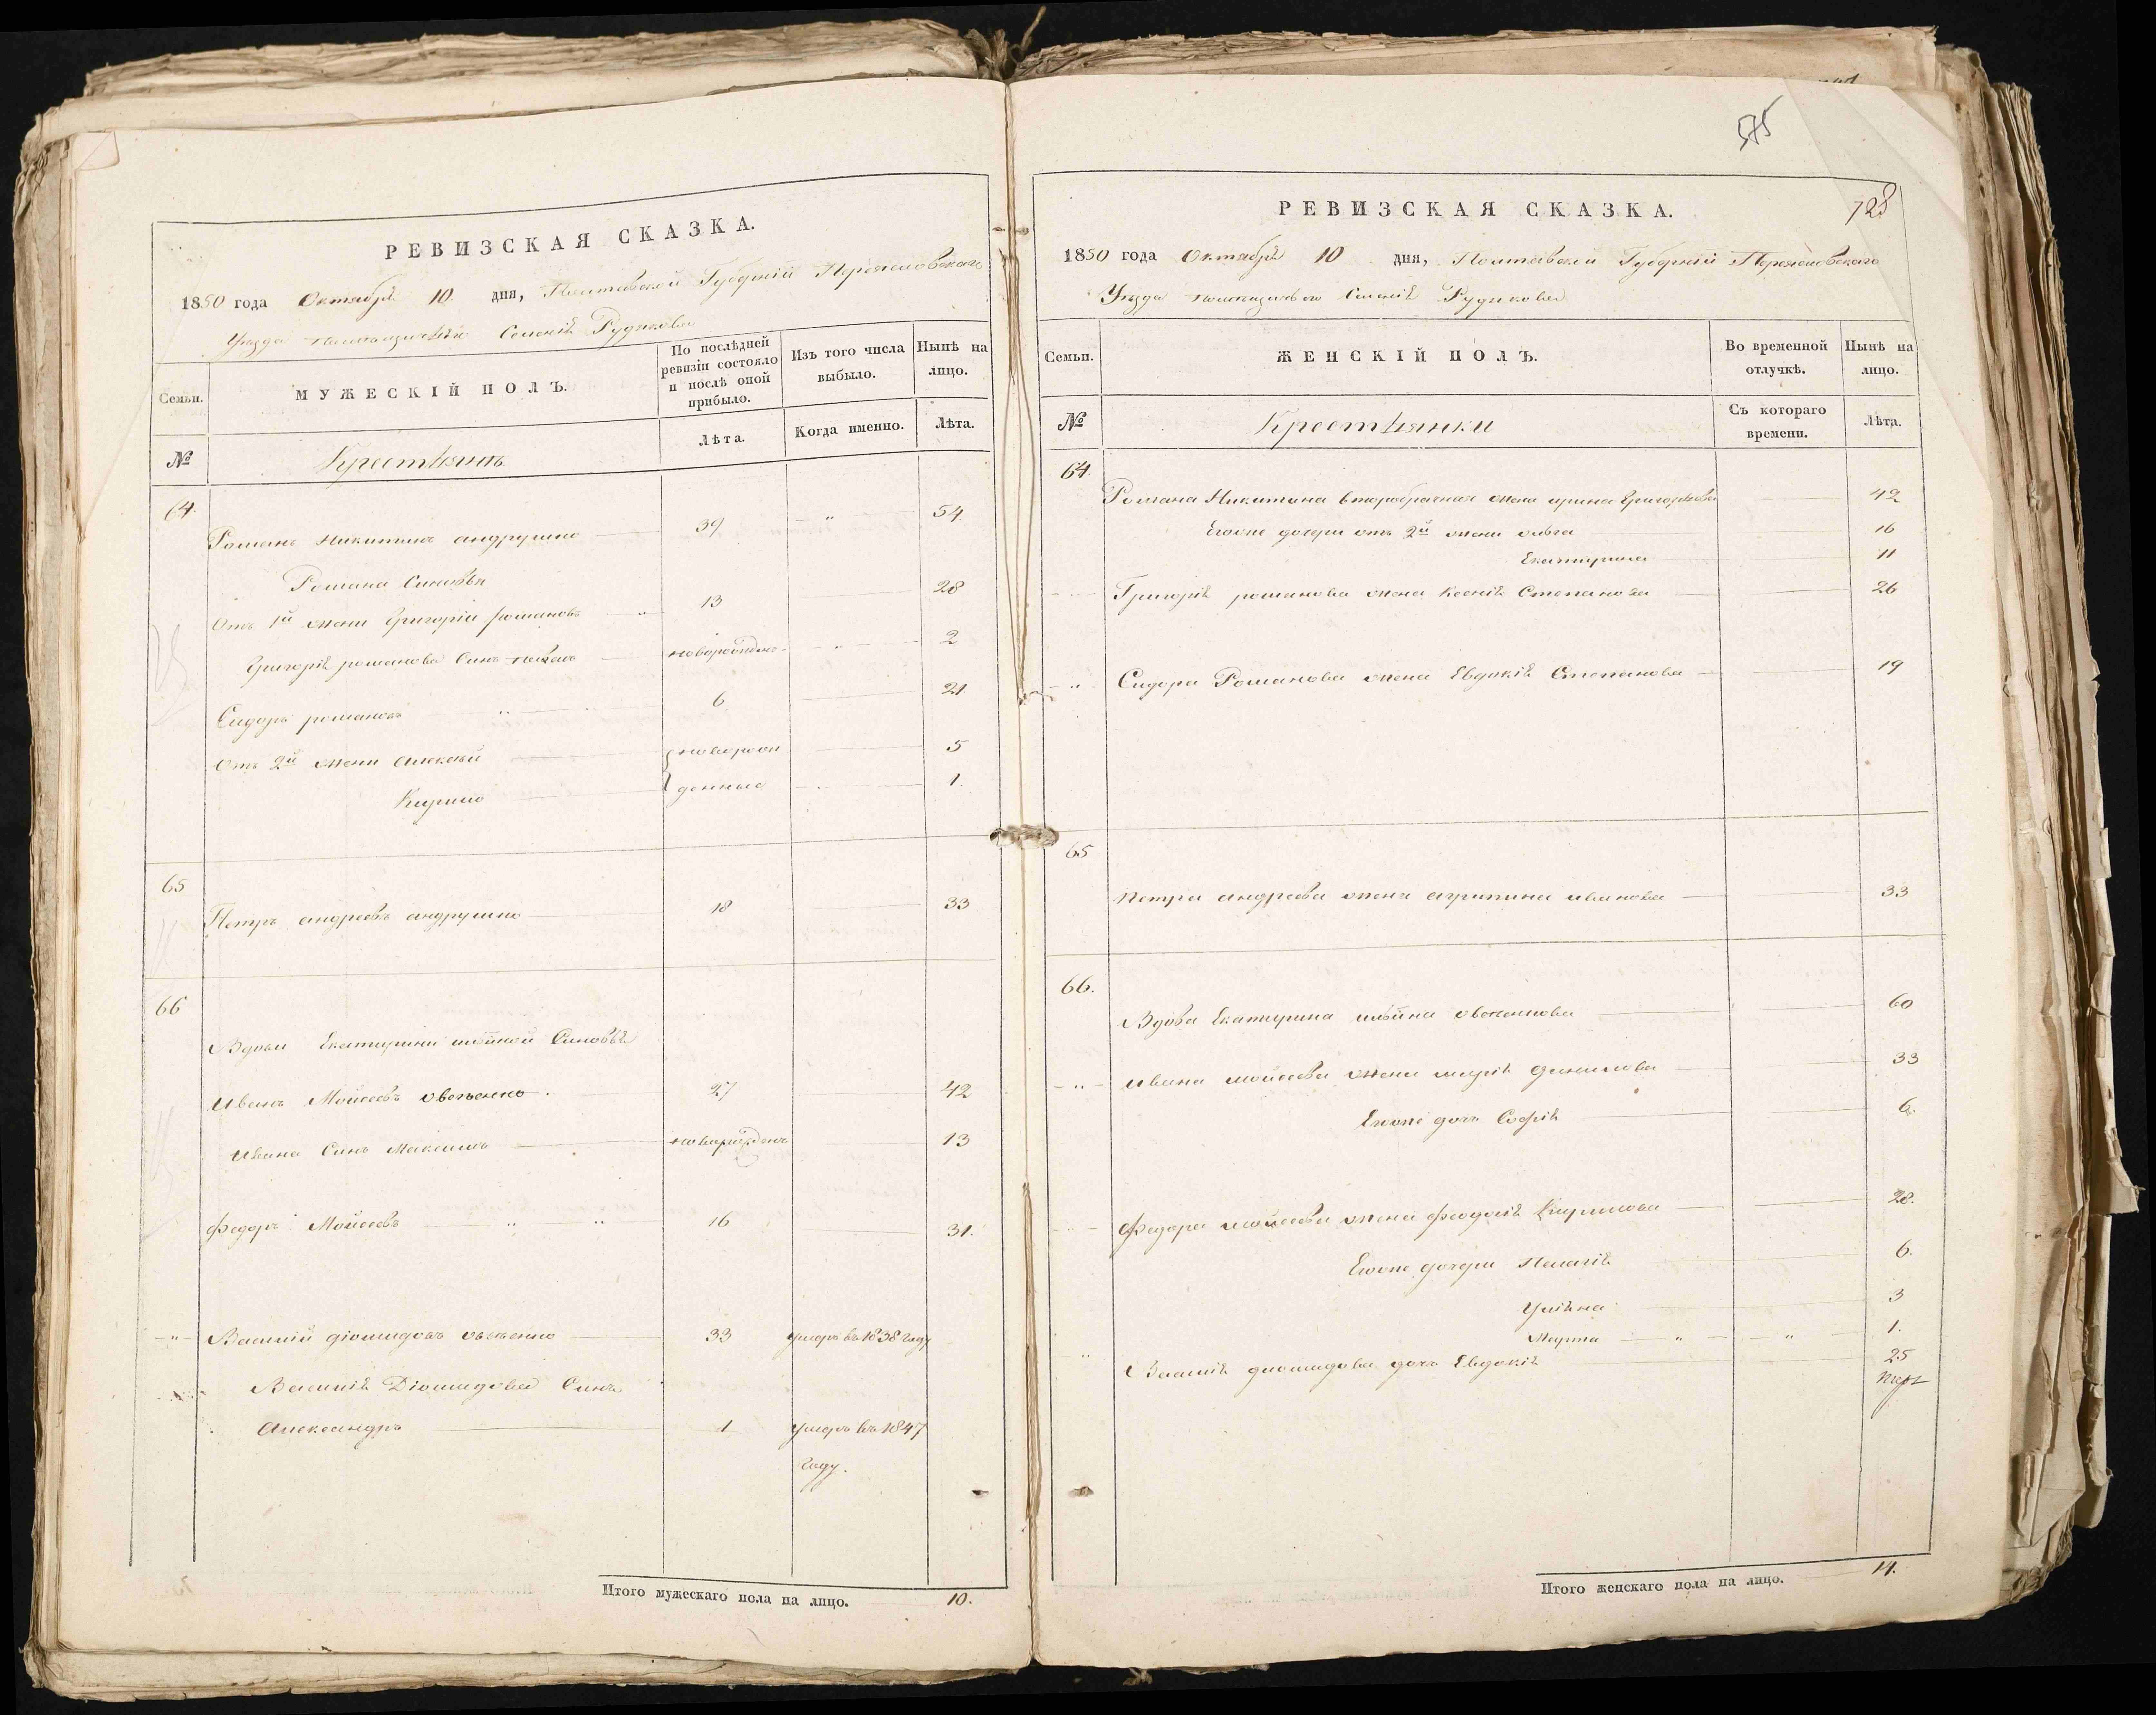 РЕВИЗСКАЯ СКАЗКА.
1850 года Октября 10 дня, Полтавской Губерніи Переяславского
Уезда Селеніе Рудяковъ
Семьи.
МУЖЕСКІЙ ПОЛЪ.
По послѣдней ревизіи состояло и послѣ оной прибыло.
Изъ того числа выбыло.
Нынѣ на лицо.
№
Крестьянъ
Лѣта.
Когда именно.
Лѣта.
64.
Романъ Никитинъ андрушко 39 " 54
Романа Синовья
Отъ 1й жени Григорій романовъ " 13 28
Григорія романова Синъ новорожденъ " 2
Сидоръ романовъ " 6 21
Отъ 2й жени алексѣй новорож 5
Кирило денные 1.
65
Петръ андреевъ андрушко 18 33
66
Вдови Екатерини Синовья
Иванъ Мойсеевъ овсіенко 27 42
Ивана Синъ Максимъ новорожденъ 13
Федоръ Мойсеевъ " " 16 31.
" Василій діомидовъ овсіенко 33 умеръ въ 1838 году
Василія Діомидова Синъ
Александръ 1 умеръ въ 1847
году.
Итого мужескаго пола на лицо. 10.
575
728
РЕВИЗСКАЯ СКАЗКА.
1850 года Октября 10 дня, Полтавской Губерніи Переяславского
Уезда Селеніе Рудякова
Семьи.
ЖЕНСКІЙ ПОЛЪ.
Во временной отлучкѣ.
Нынѣ на лицо.
№
Крестьянки
Съ котораго времени.
Лѣта.
64.
Романа Никитина второбрачная жена ирина Григорьева 42
Егоже дочери отъ 2й жени 16
Екатерина 11
Григорія романова жена Ксенія Степанова 26
" Сидора Романова жена Евдокія Степанова 19
65
Петра андреева жена агрипина иванова 33
66.
Вдова Екатерина овсіенкова 60
" ивана мойсеева жена марія данилова 33
Егоже дочь Софія 6.
Федора мойсеева жена феодосія Кирилова 28.
Егоже дочери Пелагія 6.
Уліяна 3
Марина " " 1.
" Василія диомидова дочь Евдокія 25
Итого женскаго пола на лицо. 14.